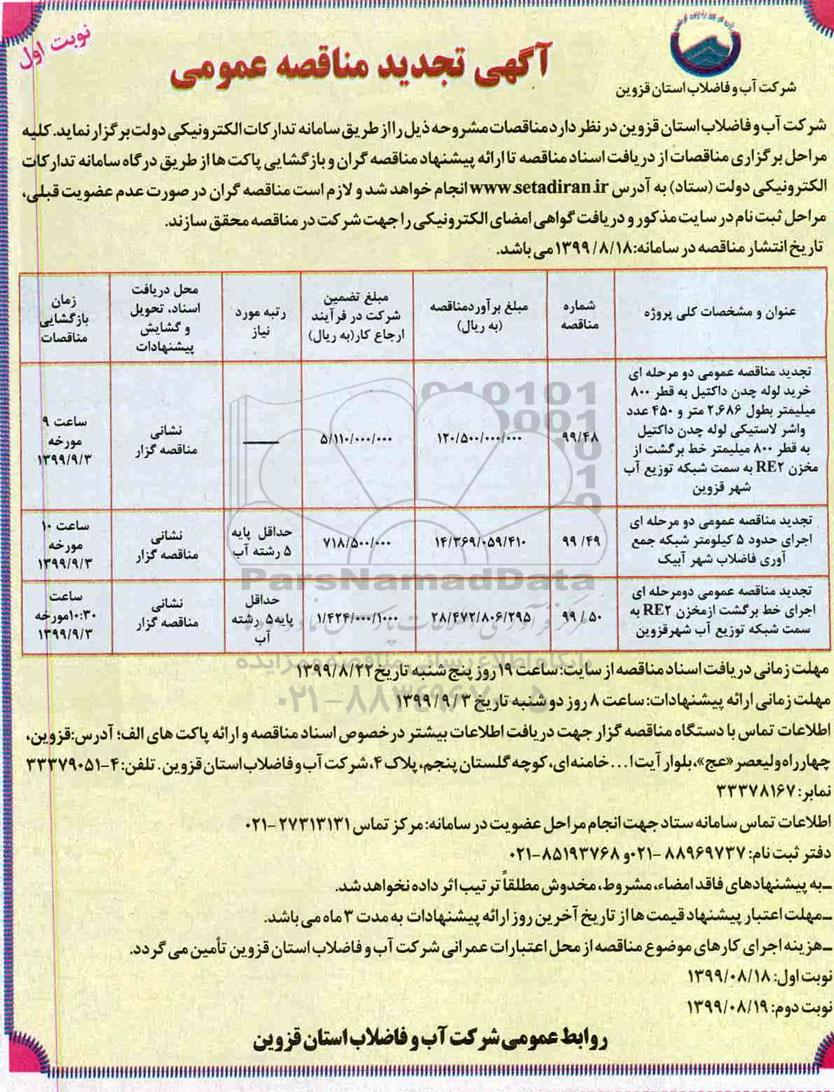 نوبت اول
آگهی تجدید مناقصه عمومی
شرکت آب و فاضلاب استان قزوین
شرکت آب و فاضلاب استان قزوین در نظر دارد مناقصات مشروحه ذیل را از طریق سامانه تدارکات الکترونیکی دولت برگزار نماید. کلیه
مراحل برگزاری مناقصات از دریافت اسناد مناقصه تا ارائه پیشنهاد مناقصه گران و بازگشایی پاکت ها از طریق درگاه سامانه تدارکات
الکترونیکی دولت (ستاد) به آدرس www.setadiran.ir انجام خواهد شد و لازم است مناقصه گران در صورت عدم عضویت قبلی،
مراحل ثبت نام در سایت مذکور و دریافت گواهی امضای الکترونیکی را جهت شرکت در مناقصه محقق سازند.
تاریخ انتشار مناقصه در سامانه: ۱۳۹۹/۸/۱۸ می باشد.
عنوان و مشخصات کلی پروژه
شماره
مناقصه
مبلغ برآورد مناقصه
(به ریال)
مبلغ تضمین
شرکت در فرآیند
ارجاع کار(به ریال)
رتبه مورد
نیاز
محل دریافت
اسناد، تحویل
و گشایش
پیشنهادات
زمان
بازگشایی
مناقصات
تجدید مناقصه عمومی دو مرحله ای
خرید لوله چدن داکتیل به قطر ۸۰۰
میلیمتر بطول ۲،۶۸۶ متر و ۴۵۰ عدد
واشر لاستیکی لوله چدن داکتیل
به قطر ۸۰۰ میلیمتر خط برگشت از
مخزن RE۲ به سمت شبکه توزیع آب
شهر قزوین
۹۹/۴۸
۱۲۰/۵۰۰/۰۰۰/۰۰۰
۵/۱۱۰/۰۰۰/۰۰۰
نشانی
مناقصه گزار
ساعت ۹
مورخه
۱۳۹۹/۹/۳
تجدید مناقصه عمومی دو مرحله ای
اجرای حدود ۵ کیلومتر شبکه جمع
آوری فاضلاب شهر آبیک
۹۹/۴۹
۱۴/۳۶۹/۰۵۹/۴۱۰
۷۱۸/۵۰۰/۰۰۰
حداقل پایه
۵ رشته آب
نشانی
مناقصه گزار
ساعت ۱۰
مورخه
۱۳۹۹/۹/۳
تجدید مناقصه عمومی دومرحله ای
اجرای خط برگشت ازمخزن RE۲ به
سمت شبکه توزیع آب شهرقزوین
۹۹/۵۰
۲۸/۴۷۲/۸۰۶/۲۹۵
۱/۴۲۴/۰۰۰/۱۰۰۰
حداقل
پایه۵ رشته
آب
نشانی
مناقصه گزار
ساعت
۱۰:۳۰مورخه
۱۳۹۹/۹/۳
ParsNamadData
۰۲۱-۸۸۳۴۹۶۷۰-۵
مهلت زمانی دریافت اسناد مناقصه از سایت: ساعت ۱۹ روز پنج شنبه تاریخ ۱۳۹۹/۸/۲۲
مهلت زمانی ارائه پیشنهادات: ساعت ۸ روز دو شنبه تاریخ ۱۳۹۹/۹/۳
اطلاعات تماس با دستگاه مناقصه گزار جهت دریافت اطلاعات بیشتر در خصوص اسناد مناقصه و ارائه پاکت های الف؛ آدرس: قزوین،
چهارراه ولیعصر «عج»، بلوار آیت ا... خامنه ای، کوچه گلستان پنجم، پلاک ۴، شرکت آب و فاضلاب استان قزوین. تلفن: ۴-۳۳۳۷۹۰۵۱
نمابر: ۳۳۳۷۸۱۶۷
اطلاعات تماس سامانه ستاد جهت انجام مراحل عضویت در سامانه: مرکز تماس ۲۷۳۱۳۱۳۱-۰۲۱
دفتر ثبت نام: ۸۸۹۶۹۷۳۷-۰۲۱ و ۸۵۱۹۳۷۶۸-۰۲۱
ـ به پیشنهادهای فاقد امضاء، مشروط، مخدوش مطلقاً ترتیب اثر داده نخواهد شد.
ـ مهلت اعتبار پیشنهاد قیمت ها از تاریخ آخرین روز ارائه پیشنهادات به مدت ۳ ماه می باشد.
ـ هزینه اجرای کارهای موضوع مناقصه از محل اعتبارات عمرانی شرکت آب و فاضلاب استان قزوین تأمین می گردد.
نوبت اول: ۱۳۹۹/۰۸/۱۸
نوبت دوم: ۱۳۹۹/۰۸/۱۹
روابط عمومی شرکت آب و فاضلاب استان قزوین